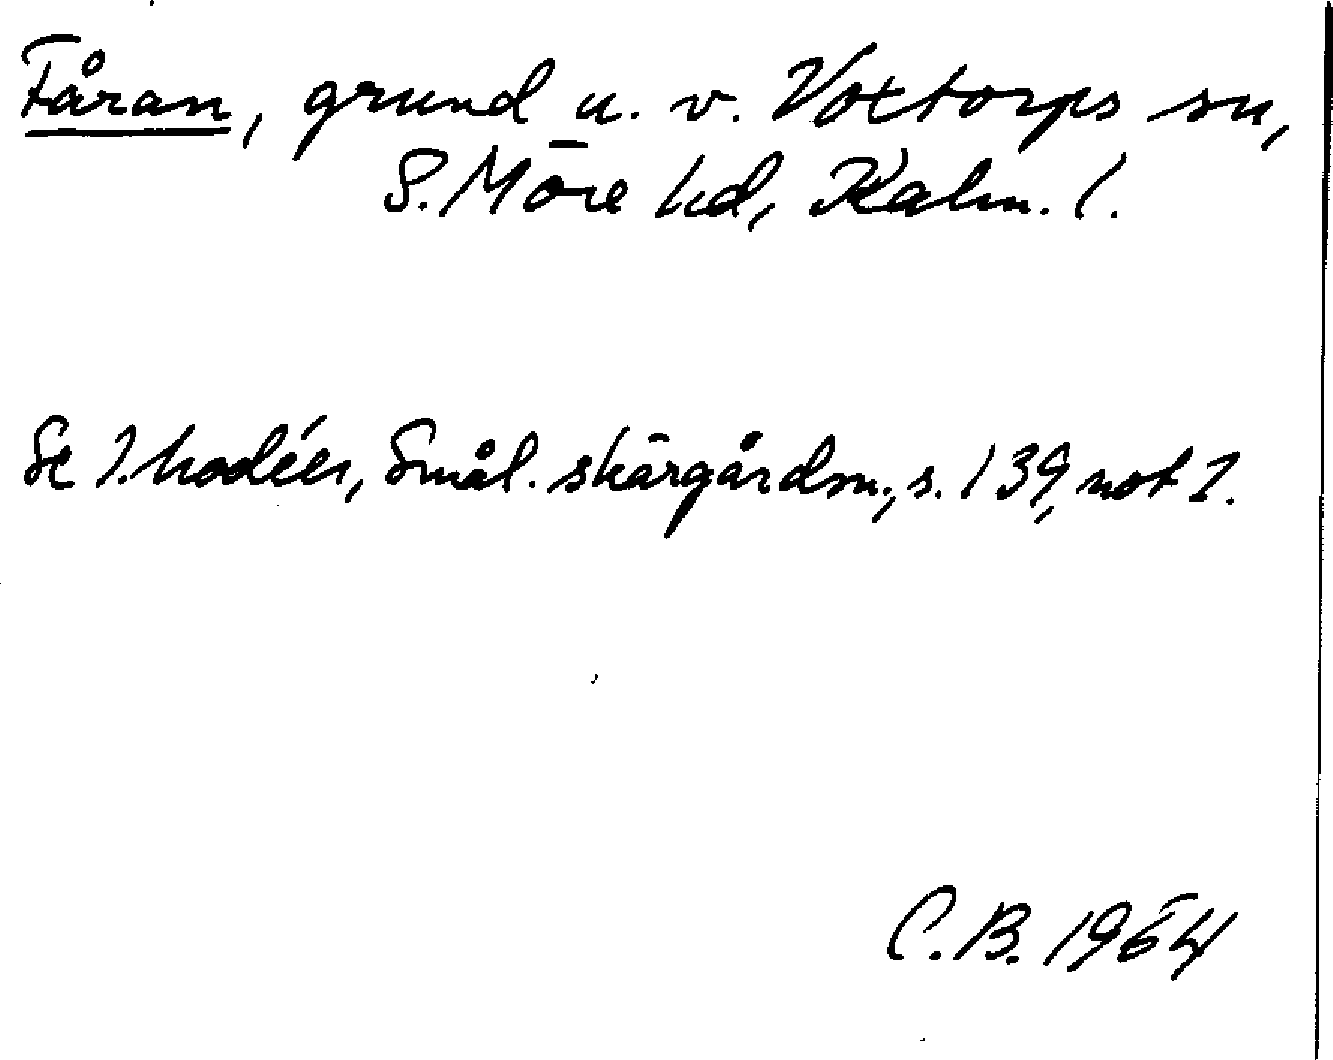 Fåran, grund u. v. Voxtorps sn,
S. Möre hd, Kalm. l.
Se I. Modéer, Smål. skärgårdsn., s. 139, not 1.
C.B. 1964